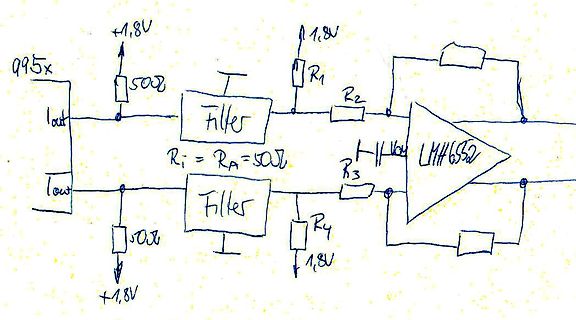 +1,8V
1,8V
995x
50Ω
R1
R2
Iout
Filter
Ri = RA = 50Ω
VCM
LMH6552
Iout
Filter
R3
R4
50Ω
1,8V
+1,8V